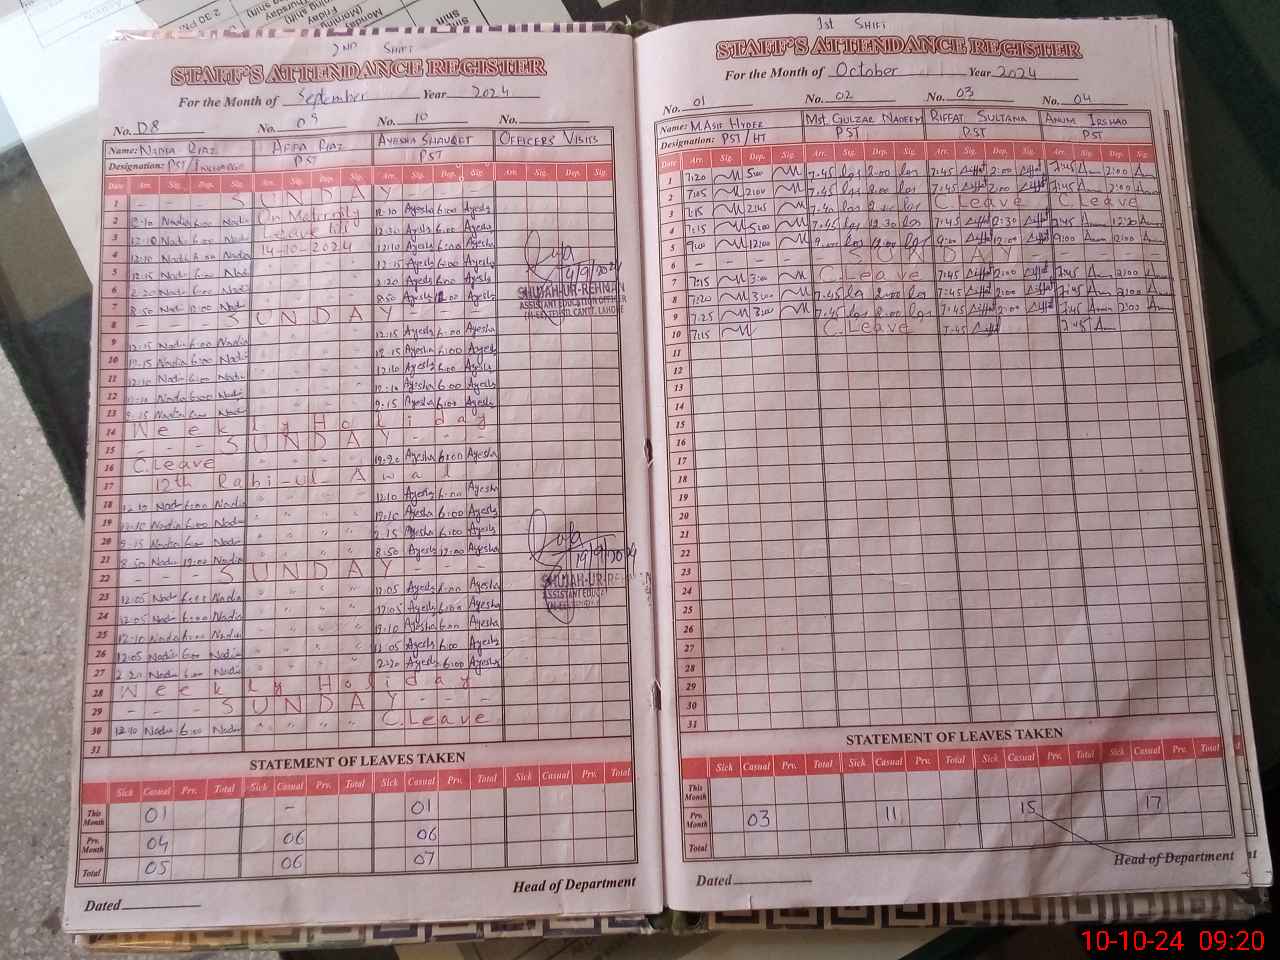 2ND SHIFT
STAFF'S ATTENDANCE REGISTER
For the Month of September Year 2024
No. 08 No. 09 No. 10 No.
Name: Nadia Riaz AFFA RIAZ AYESHA SHAUQET OFFICERS VISITS
Designation: PST/Incharge PST PST
Date Arr. Sig. Dep. Sig. Arr. Sig. Dep. Sig. Arr. Sig. Dep. Sig. Arr. Sig. Dep. Sig.
1 - - - SUNDAY - - -
2 12:10 Nadia 6:00 Nadia On Maternity 12:10 Ayesha 6:00 Ayesha
3 12:10 Nadia 6:00 Nadia Leave till 12:30 Ayesha 6:00 Ayesha
4 12:10 Nadia 6:00 Nadia 14-10-2024 12:10 Ayesha 6:00 Ayesha
5 12:15 Nadia 6:00 Nadia 12:15 Ayesha 6:00 Ayesha
6 2:20 Nadia 6:00 Nadia 2:20 Ayesha 6:00 Ayesha
7 8:50 Nadia 12:00 Nadia 8:50 Ayesha 12:00 Ayesha
8 - - - SUNDAY - - -
9 12:15 Nadia 6:00 Nadia 12:15 Ayesha 6:00 Ayesha
10 12:15 Nadia 6:00 Nadia 12:15 Ayesha 6:00 Ayesha
11 12:10 Nadia 6:00 Nadia 12:10 Ayesha 6:00 Ayesha
12 12:10 Nadia 6:00 Nadia 12:10 Ayesha 6:00 Ayesha
13 2:15 Nadia 6:00 Nadia 2:15 Ayesha 6:00 Ayesha
14 Weekly Holiday
15 - - - SUNDAY - - -
16 C.Leave 12:20 Ayesha 6:00 Ayesha
17 12th Rabi-ul-Awal
18 12:10 Nadia 6:00 Nadia 12:10 Ayesha 6:00 Ayesha
19 12:10 Nadia 6:00 Nadia 12:10 Ayesha 6:00 Ayesha
20 2:15 Nadia 6:00 Nadia 2:15 Ayesha 6:00 Ayesha
21 8:50 Nadia 12:00 Nadia 8:50 Ayesha 12:00 Ayesha
22 - - - SUNDAY - - -
23 12:05 Nadia 6:00 Nadia 12:05 Ayesha 6:00 Ayesha
24 12:05 Nadia 6:00 Nadia 12:05 Ayesha 6:00 Ayesha
25 12:10 Nadia 6:00 Nadia 12:10 Ayesha 6:00 Ayesha
26 12:05 Nadia 6:00 Nadia 12:05 Ayesha 6:00 Ayesha
27 2:20 Nadia 6:00 Nadia 2:20 Ayesha 6:00 Ayesha
28 Weekly Holiday
29 - - - SUNDAY - - -
30 12:10 Nadia 6:00 Nadia C.Leave
31
4/9/2024
SHUJAH-UR-REHMAN
ASSISTANT EDUCATION OFFICER
19/9/2024
SHUJAH-UR-REHMAN
STATEMENT OF LEAVES TAKEN
Sick Casual Prv. Total Sick Casual Prv. Total Sick Casual Prv. Total Sick Casual Prv. Total
This Month 01 - 01
Prv. Month 04 06 06
Total 05 06 07
Head of Department
Dated
1st SHIFT
STAFF'S ATTENDANCE REGISTER
For the Month of October Year 2024
No. 01 No. 02 No. 03 No. 04
Name: M.ASIF HYDER Mst. GULZAR NADEEM RIFFAT SULTANA ANUM IRSHAD
Designation: PST/HT PST PST PST
Date Arr. Sig. Dep. Sig. Arr. Sig. Dep. Sig. Arr. Sig. Dep. Sig. Arr. Sig. Dep. Sig.
1 7:20 5:00 7:45 2:00 7:45 2:00 7:45 2:00
2 7:05 2:00 7:45 2:00 7:45 2:00 7:45 2:00
3 7:15 2:45 7:40 2:00 C.Leave C.Leave
4 7:15 5:00 7:45 12:30 7:45 12:30 7:45 12:30
5 9:00 12:00 9:00 12:00 9:00 12:00 9:00 12:00
6 - - - SUNDAY - - -
7 7:15 3:00 C.Leave 7:45 2:00 7:45 2:00
8 7:20 3:00 7:45 2:00 7:45 2:00 7:45 2:00
9 7:25 3:00 7:45 2:00 7:45 2:00 7:45 2:00
10 7:15 C.Leave 7:45 7:45
11
12
13
14
15
16
17
18
19
20
21
22
23
24
25
26
27
28
29
30
31
STATEMENT OF LEAVES TAKEN
Sick Casual Prv. Total Sick Casual Prv. Total Sick Casual Prv. Total Sick Casual Prv. Total
This Month
Prv. Month 03 11 15 17
Total
Head of Department
Dated
10-10-24 09:20